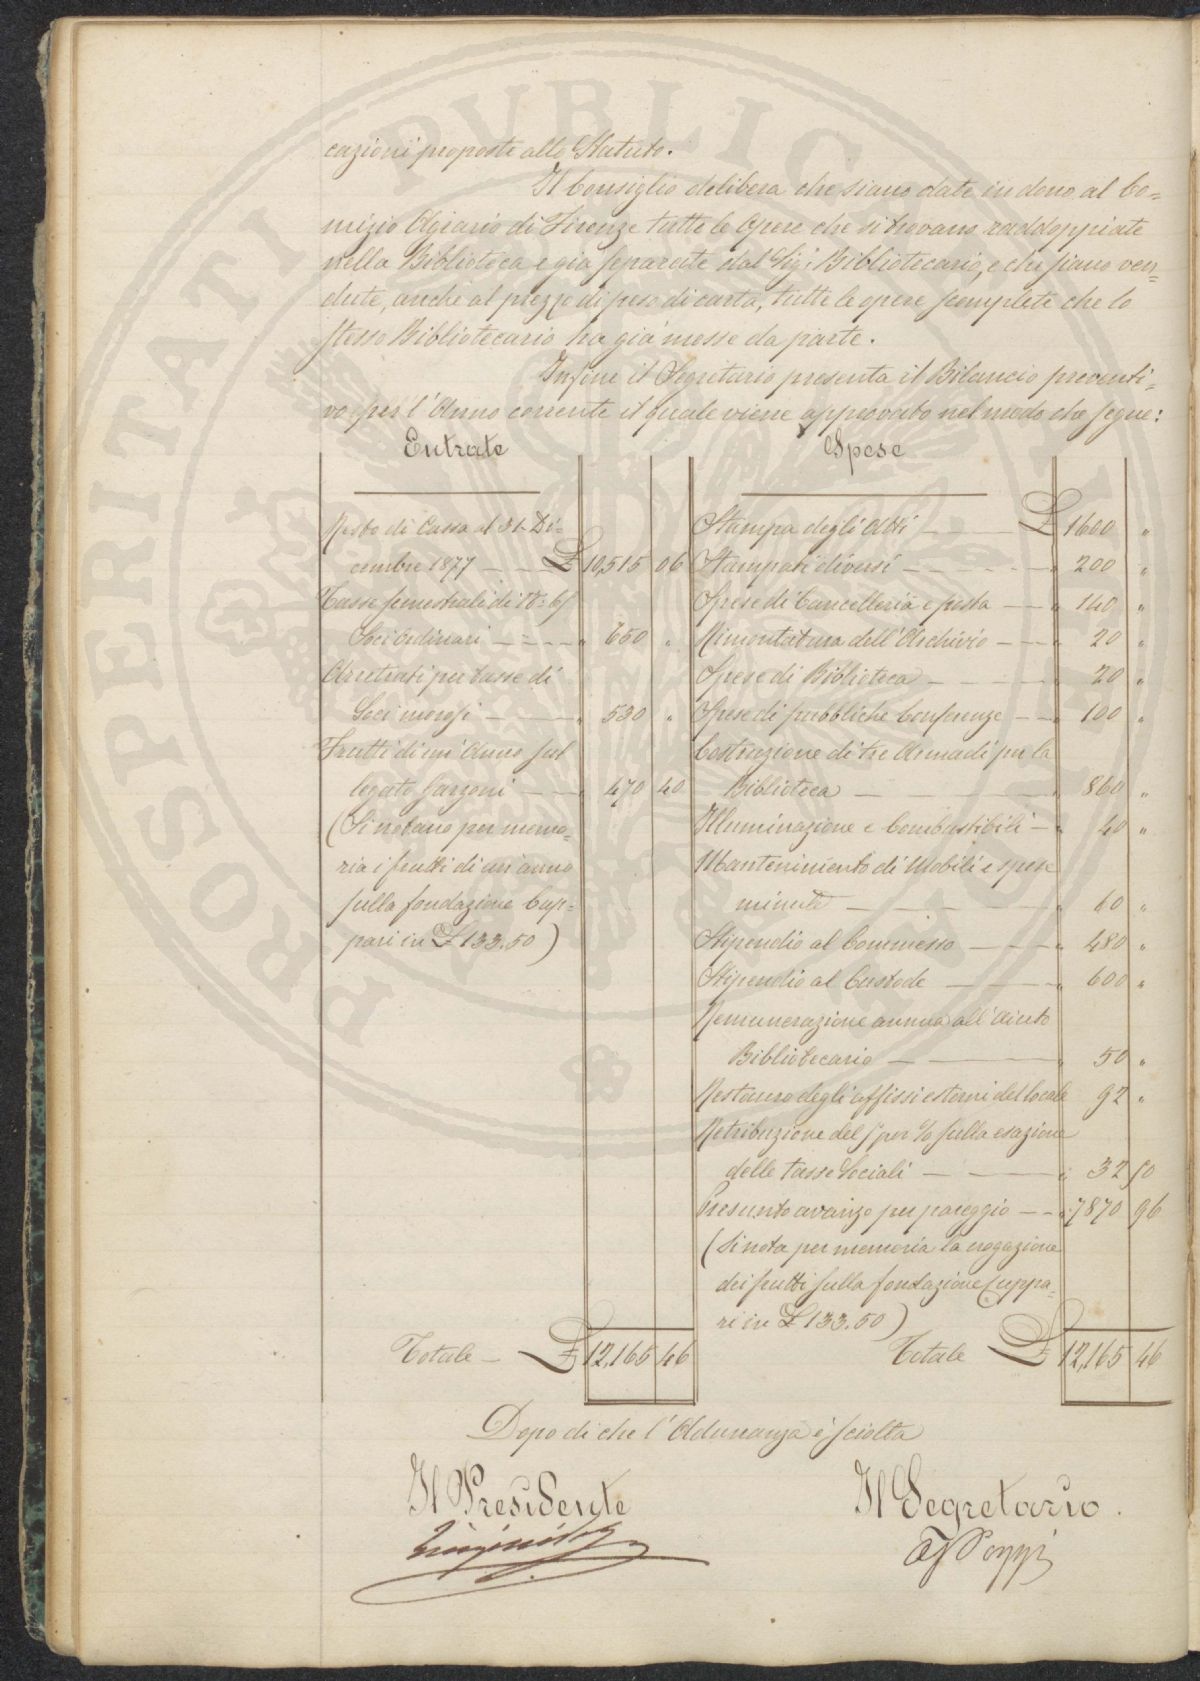 PROSPERITATI PUBLICAE AUGENDAE
cazioni proposte allo Statuto.
Il Consiglio delibera che siano date in dono al Co=
mizio Agrario di Firenze tutte le Opere che si trovano raddoppiate
nella Biblioteca e già separate dal Sig: Bibliotecario, e che siano ven=
dute, anche al prezzo di peso di carta, tutte le opere scomplete che lo
stesso Bibliotecario ha già messe da parte.
Infine il Segretario presenta il Bilancio preventi=
vo per l'Anno corrente il quale viene approvato nel modo che segue:
Entrate
Resto di Cassa al 31. Di=
cembre 1877 — £ 10,515 06
Tasse semestrali di N.° 65
Soci Ordinari — " 650 "
Arretrati per tasse di
Soci morosi — " 530 "
Frutti di un'Anno sul
legato Garzoni — " 470 40
(Si notano per memo=
ria i frutti di un'anno
sulla fondazione Cup=
pari in £ 133.50)
Totale — £ 12,165 46
Spese
Stampa degli Atti — £ 1600 "
Stampati diversi — " 200 "
Spese di Cancelleria e posta — " 140 "
Rimontatura dell'Archivio — " 20 "
Spese di Biblioteca — " 20 "
Spese di pubbliche Conferenze — " 100 "
Costruzione di tre Armadi per la
Biblioteca — " 860 "
Illuminazione e Combustibili — " 40 "
Mantenimento di Mobili e spese
minute — " 60 "
Stipendio al Commesso — " 480 "
Stipendio al Custode — " 600 "
Remunerazione annua all'Aiuto
Bibliotecario — " 50 "
Restauro degli affissi esterni del locale 92 "
Retribuzione del 5 per % sulla esazione
delle tasse Sociali — " 32 50
Presunto avanzo per pareggio — " 7870 96
(Si nota per memoria la erogazione
dei frutti sulla fondazione Cuppa=
ri in £ 133.50)
Totale £ 12,165 46
Dopo di che l'Adunanza è sciolta
Il Presidente
Il Segretario.